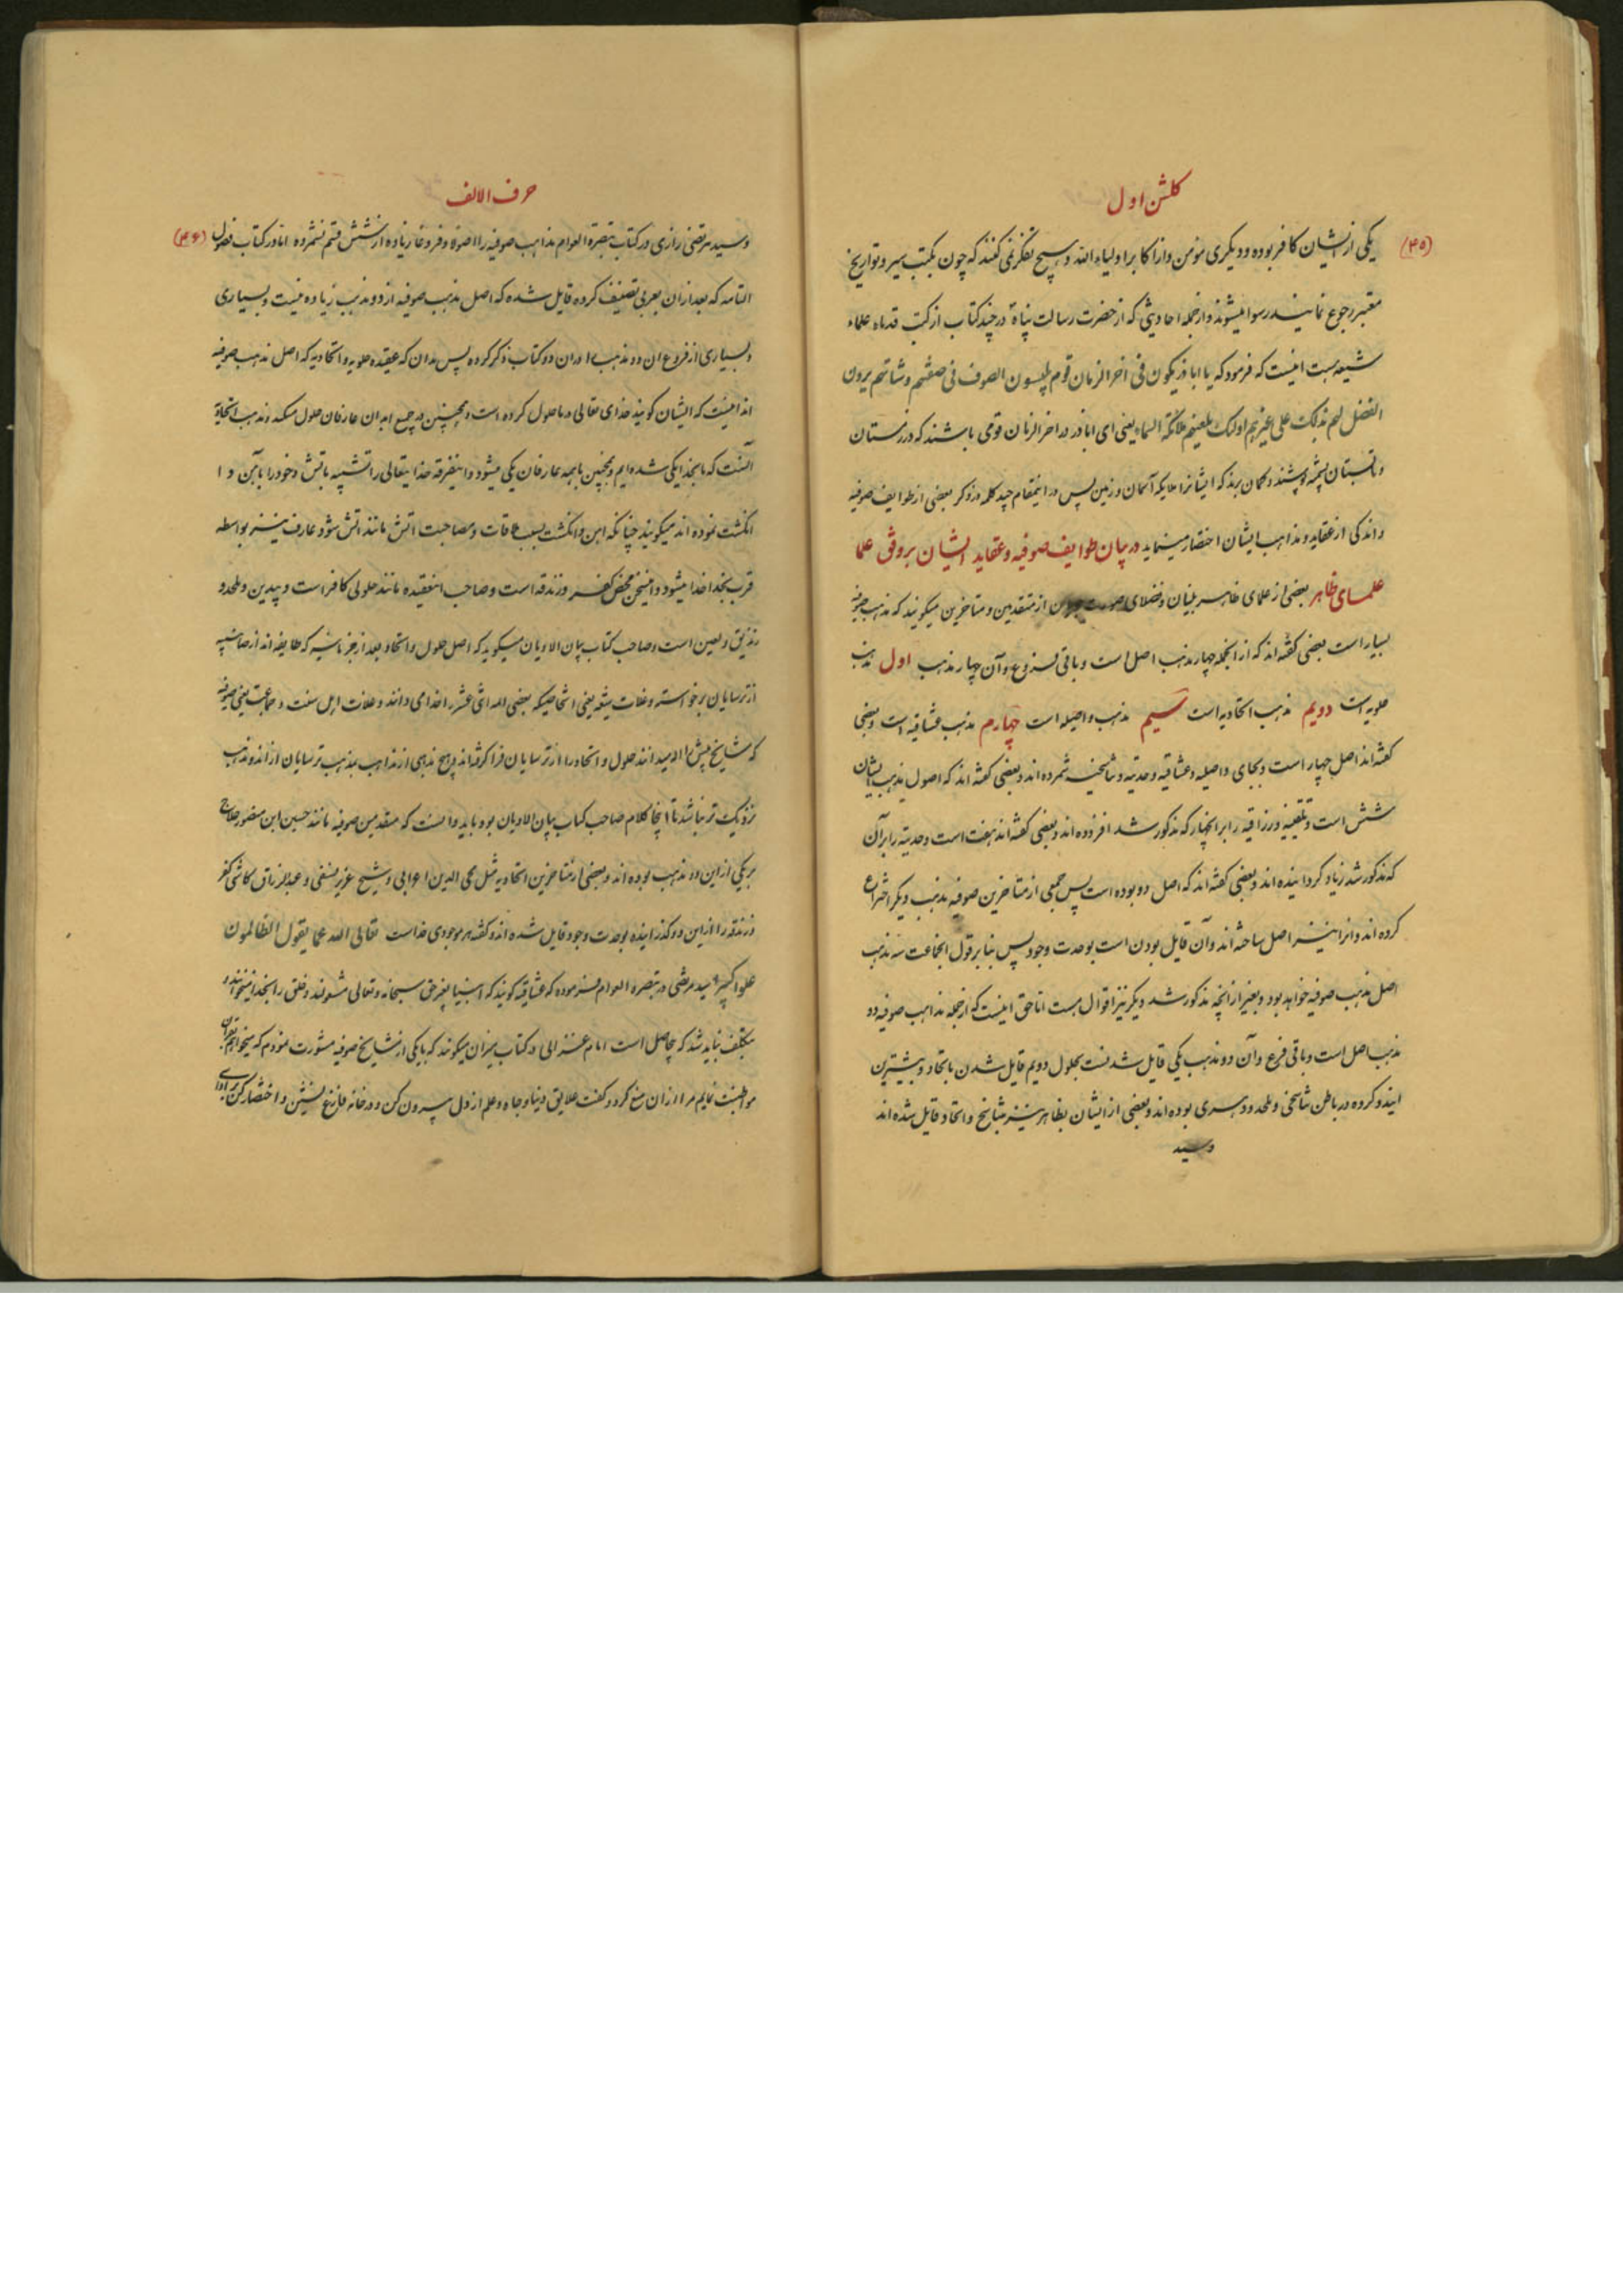 کلشن اول
(۴۵)
یکی از ایشان کافر بوده و دیکری مؤمن و از اکابر اولیاء الله و هیچ تفکر نمی کنند که چون بکتب سیر و تواریخ
معتبر رجوع نمایند رسوا میشوند و از جمله احادیثی که از حضرت رسالت پناه در چند کتاب از کتب قدماء علماء
شیعه هست اینست که فرمود که یا اباذر یکون فی اخر الزمان قوم یلبسون الصوف فی صیفهم و شتائهم یرون
الفضل لهم بذلک علی غیرهم اولئک یلعنهم ملائکة السماء یعنی ای اباذر در اخر الزمان قومی باشند که در زمستان
و تابستان پشم پوشند و کمان برند که ایشانرا ملایکه آسمان و زمین پس در اینمقام چند کلمه در ذکر بعضی از طوایف صوفیه
و اندکی از عقاید و مذاهب ایشان اختصار مینماید در بیان طوایف صوفیه و عقاید ایشان بر وفق علما
علمای ظاهر بعضی از علمای ظاهر بنیان و فضلای صورت از متقدمین و متاخرین میکویند که مذهب صوفیه
بسیار است بعضی کفته اند که از انجمله چهار مذهب اصل است و باقی فروع و آن چهار مذهب اول مذهب
حلولیه است دویم مذهب اتحادیه است سیم مذهب واصلیه است چهارم مذهب عشاقیه است و بعضی
کفته اند اصل چهار است و بجای واصلیه و عشاقیه وحدتیه و تناسخیه شمرده اند و بعضی کفته اند که اصول مذهب ایشان
شش است و تلقینیه و رزاقیه را بر اینچهار که مذکور شد افزوده اند و بعضی کفته اند هفت است وحدتیه را بر آن
که مذکور شد زیاد کردانیده اند و بعضی کفته اند که اصل دو بوده است پس جمعی از متاخرین صوفیه مذهب دیکر اختراع
کرده اند و انرا نیز اصل ساخته اند و آن قایل بودن است بوحدت وجود پس بنا بر قول انجماعت سه مذهب
اصل مذهب صوفیه خواهد بود و بغیر از انچه مذکور شد دیکر نیز اقوال هست اما حق اینست که از جمله مذاهب صوفیه دو
مذهب اصل است و باقی فرع و آن دو مذهب یکی قایل شدنست بحلول دویم قایل شدن باتحاد و بیشترین
ایندو کروه در باطن تناسخی و ملحد و دهری بوده اند و بعضی از ایشان بظاهر نیز بتناسخ و اتحاد قایل شده اند
و سید
حرف الالف
(۴۶)
و سید مرتضی رازی در کتاب تبصرة العوام مذاهب صوفیه را اصولا و فروعا زیاده از شش قسم نشمرده اما در کتاب فصول
التامه که بعد از ان بعربی تصنیف کرده قایل شده که اصل مذهب صوفیه از دو مذهب زیاده نیست و بسیاری
و بسیاری از فروع ان دو مذهب را در ان دو کتاب ذکر کرده پس بدان که عقیده حلولیه و اتحادیه که اصل مذهب صوفیه
اند اینست که ایشان کویند خدای تعالی در ما حلول کرده است و همچنین در جمیع ابدان عارفان حلول میکند و مذهب اتحادیه
آنست که ما بخدا یکی شده ایم و همچنین با همه عارفان یکی میشود و اینفرقه خدایتعالی را تشبیه باتش و خود را بآهن و ا
انکشت نموده اند میکویند چنانکه اهن و انکشت بسبب ملاقات و مصاحبت اتش مانند اتش شود عارف نیز بواسطه
قرب بخدا خدا میشود و اینسخن محض کفر و زندقه است و صاحب اینعقیده مانند حلولی کافر است و بیدین و ملحد و
زندیق و لعین است و صاحب کتاب بیان الادیان میکوید که اصل حلول و اتحاد بعد از
از ترسایان برخواسته و غلات شیعه یعنی اشخاصیکه بعضی ائمه اثنی عشر را خدا می دانند و غلات اهل سنت و جماعت یعنی صوفیه
که مشایخ پیش را دیدند حلول و اتحاد را از ترسایان فرا کرفته اند و هیچ مذهبی از مذاهب بمذهب ترسایان از اندو مذهب
نزدیک تر نباشد تا اینجا کلام صاحب کتاب بیان الادیان بود باید دانست که متقدمین صوفیه مانند حسین ابن منصور حلاج
بر یکی از این دو مذهب بوده اند و بعضی از متاخرین اتحادیه مثل محی الدین اعرابی و شیخ عزیز نسفی و عبدالرزاق کاشی کفر
و زندقه را از این دو کذرانیده بوحدت وجود قایل شده اند و کفته هر موجودی خداست تعالی الله عما یقول الظالمون
علوا کبیرا و سید مرتضی در تبصره العوام فرموده که عشاقیه کویند که انبیا بغیر حق سبحانه و تعالی مشغولند و خلق را بخدا میخوانند و
مکلف نباید شد که بیحاصل است امام غزالی در کتاب میزان میکوید که با یکی از مشایخ صوفیه مشورت نمودم که میخواهم بقران
مواظبت نمایم مرا از ان منع کرد و کفت علایق دنیا و جاه و علم از دل بیرون کن و در خانه فارغ بنشین و اختصار کن